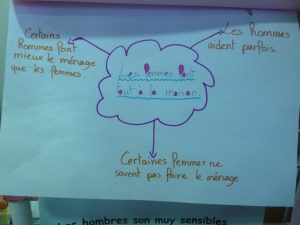 Certains
hommes font
mieux le ménage
que les femmes.
Les hommes
aident parfois.
Les femmes font
tout à la maison.
Certaines femmes ne
savent pas faire le ménage.
Los hombres son muy sensibles